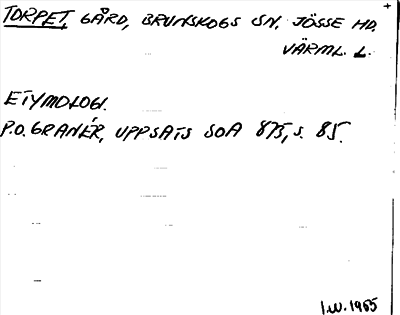 TORPET, GÅRD, BRUNSKOGS SN. JÖSSE HD.
VÄRML. L.
ETYMOLOGI.
P.O. GRANÉR, UPPSATS SOA 875, S. 85.
I.W. 1965